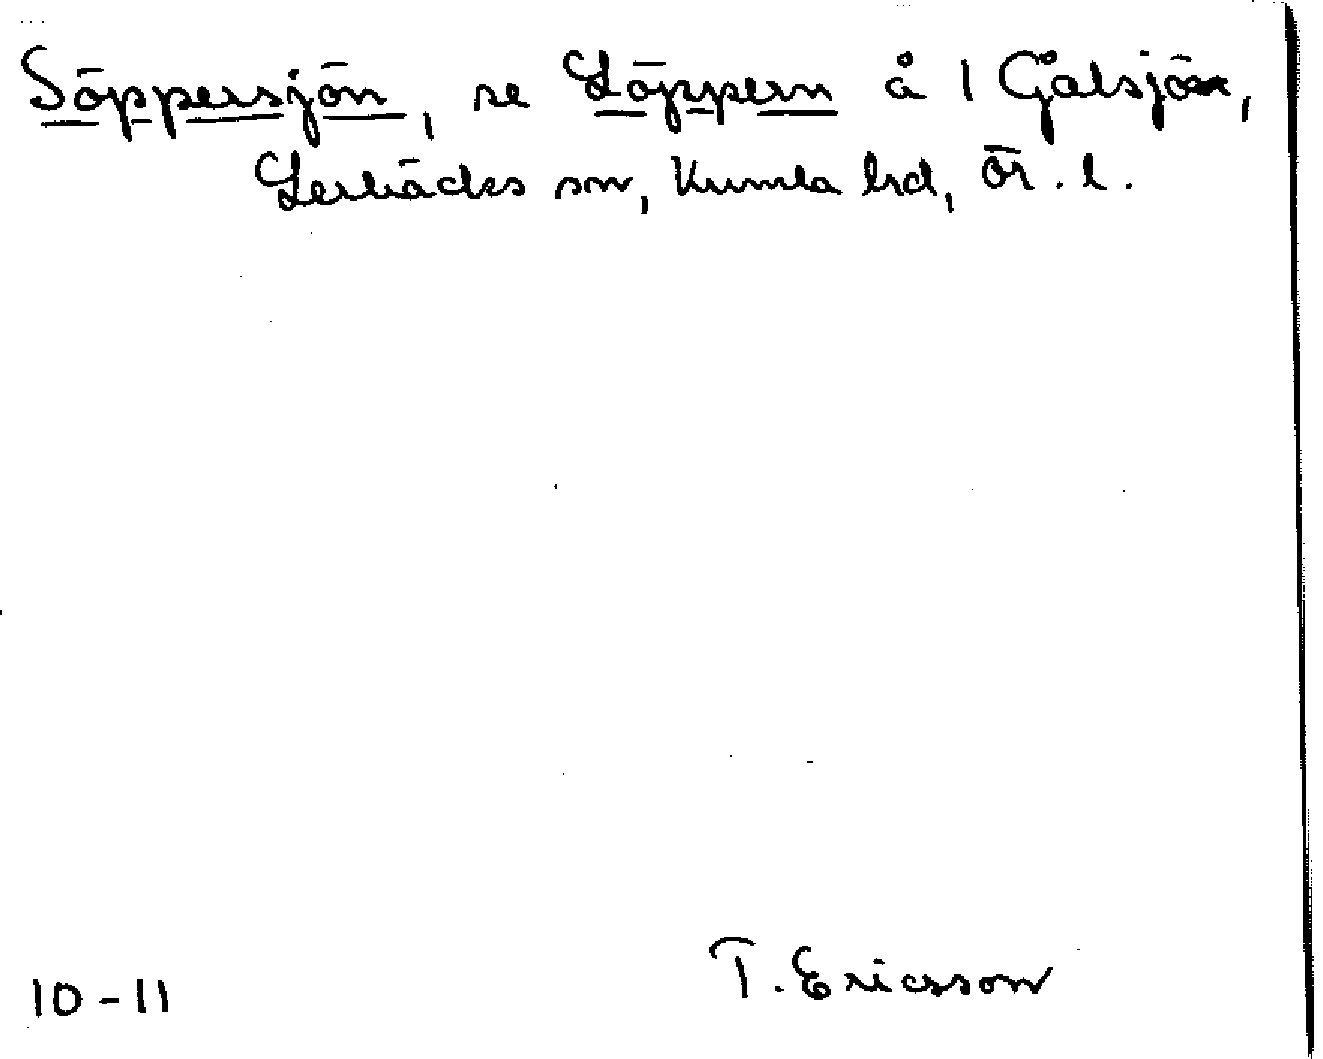 Söppersjön, se Löppern å 1 Gålsjön,
Lerbäcks sn, Kumla hd, Ör. l.
T. Ericsson
10-11